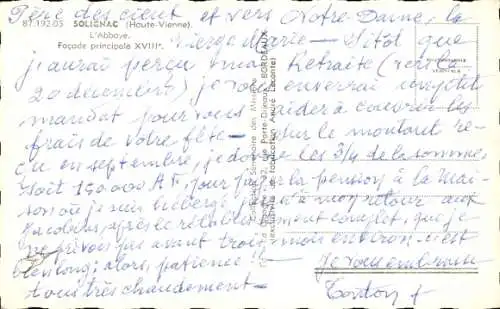 Père des cieux et vers Notre-Dame, la
87.192.05 SOLIGNAC (Haute-Vienne).
L'Abbaye.
Façade principale XVIIIe.
Vierge Marie — Sitôt que
j'aurai perçu ma Retraite (vers le
20 décembre) je vous enverrai un petit
mandat pour vous aider à couvrir les
frais de votre fête — sur le montant re-
çu en septembre, je donne les 3/4 de la somme
soit 190.000 A.F. pour payer la pension à la Mai-
son où je suis hébergé à mon retour aux
Jacobins, après le rétablissement complet, que je
ne prévois pas avant trois mois environ. c'est
bien long; alors, patience!
Je vous embrasse
tous très chaudement —
Tonton